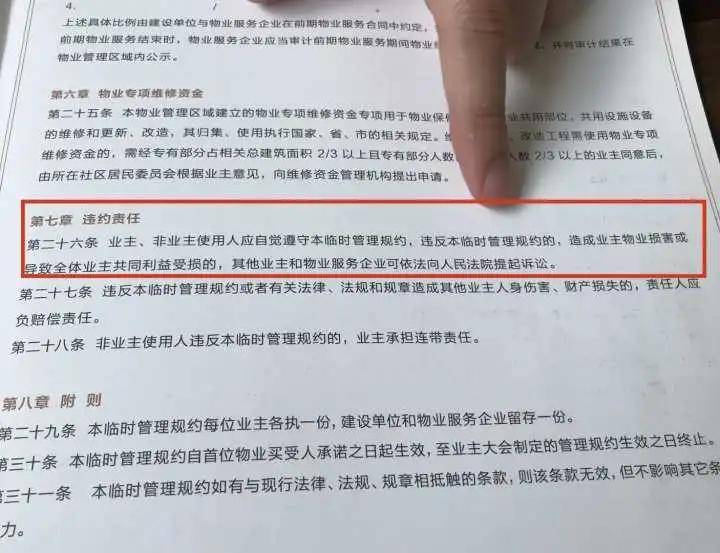 4.
上述具体比例由建设单位与物业服务企业在前期物业服务合同中约定,
前期物业服务结束时,物业服务企业应当审计前期物业服务期间物业 并将审计结果在
物业管理区域内公示。
第六章 物业专项维修资金
第二十五条 本物业管理区域建立的物业专项维修资金专项用于物业保 业共用部位、共用设施设备
的维修和更新、改造,其归集、使用执行国家、省、市的相关规定。 改造工程需使用物业专项
维修资金的,需经专有部分占相关总建筑面积 2/3 以上且专有部分人数 人数 2/3 以上的业主同意后,
由所在社区居民委员会根据业主意见,向维修资金管理机构提出申请。
第七章 违约责任
第二十六条 业主、非业主使用人应自觉遵守本临时管理规约,违反本临时管理规约的,造成业主物业损害或
导致全体业主共同利益受损的,其他业主和物业服务企业可依法向人民法院提起诉讼。
第二十七条 违反本临时管理规约或者有关法律、法规和规章造成其他业主人身伤害、财产损失的,责任人应
负赔偿责任。
第二十八条 非业主使用人违反本临时管理规约的,业主承担连带责任。
第八章 附 则
第二十九条 本临时管理规约每位业主各执一份,建设单位和物业服务企业留存一份。
第三十条 本临时管理规约自首位物业买受人承诺之日起生效,至业主大会制定的管理规约生效之日终止。
第三十一条 本临时管理规约如有与现行法律、法规、规章相抵触的条款,则该条款无效,但不影响其它条
力。